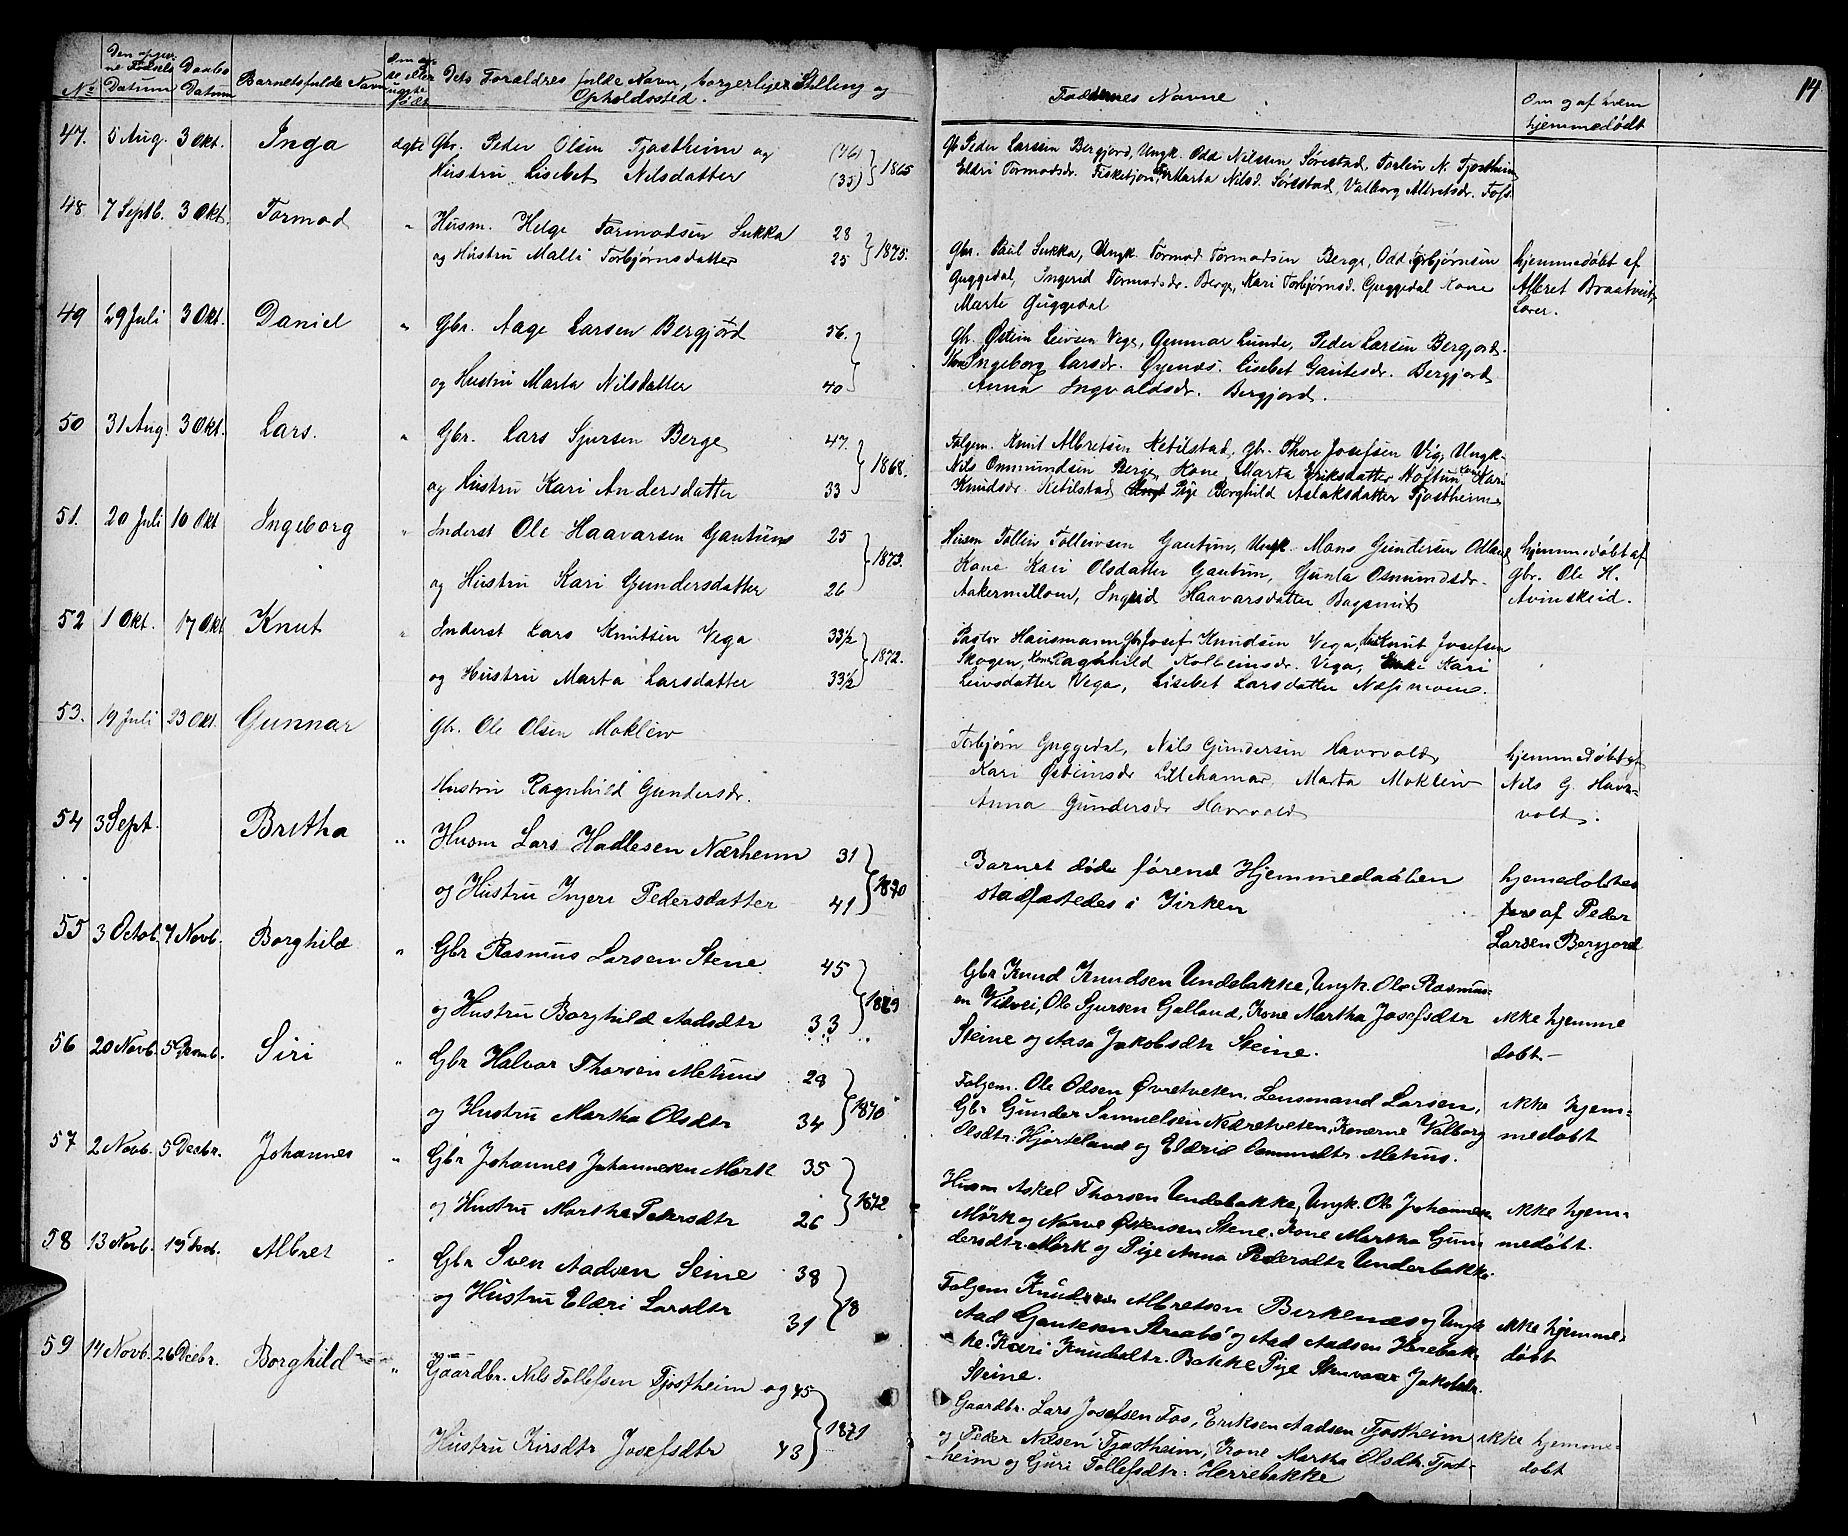 14
No
Den opgivne Fødsels Datum
Daabs Datum
Barnets fulde Navn
Om ægte eller uægte født
Dets Forældres fulde Navn, borgerlige Stilling og
Opholdssted.
Faddernes Navne
Om og af hvem
hjemmedøbt
47. 5 Aug. 3 Okt. Inga ægte Gbr. Peder Olsen Tjostheim og (46)
Hustru Lisebet Nilsdatter (35) } 1865
Gb Peder Larssen Bergjord, Ungk. Odd Nilssen Sørestad, Torleiv N. Tjostheim
Eldri Tormodsdr. Fisketjøn, Marta Nilsd. Sørestad, Valborg Albretsdr. Fos.
48. 7 Septb. 3 Okt. Tormod " Husm. Helge Tormodsen Lukka 28
og Hustru Malli Torbjørnsdatter 25 } 1875.
Gbr. Paul Lukka, Ungk. Tormod Tormodsen Berge, Odd Torbjørnsen
Guggedal, Ingerid Tormodsdr. Berge, Kari Torbjørnsd. Guggedal Kone
Marte Guggedal
hjemmedøbt af
Albret Braatveit,
Lærer.
49 29 Juli 3 Okt. Daniel " Gbr. Aage Larsen Bergjord 56.
og Hustru Marta Nilsdatter 40 }
Gbr. Østein Leivsen Vega, Gunnar Lunde, Peder Larsen Bergjord.
Kone Ingeborg Larsdr. Øynæs. Lisebet Gautesdr. Bergjord
Anna Ingvaldsdr. Bergjord.
50 31 Aug. 3 Okt. Lars. " Gbr. Lars Sjursen Berge 47.
og Hustru Kari Andersdatter 33 } 1868.
Følgem. Knut Albretsen Ketilstad, Gbr. Thore Josefsen Vig, Ungk.
Nils Ommundsen Berge, Kone Marta Eriksdatter Høftun, Kone Kari
Knudsdr. Ketilstad Pige Borghild Aslaksdatter Tjostheim
51. 20 Juli 10 Okt Ingeborg " Inderst Ole Haavarsen Gautun 25
og Hustru Kari Gundersdatter 26 } 1873.
Husm Tollev Tolleivsen Gautun, Ungk. Mons Gundersen Odland
Kone Kari Olsdatter Gautun, Gunla Osmundsdr.
Aakermellom, Ingrid Haavarsdatter Bagsnut
hjemmedøbt af
Gbr. Ole H.
Avinskeid.
52 1 Okt. 17 Okt Knut " Inderst Lars Knutsen Vega 33½
og Hustru Marta Larsdatter 33½ } 1872.
Pastor Hausmann Gbr Josef Knudsen Vega, Knut Josefsen
Skogen, Kone Ragnhild Kolbeinsdr. Vega, Enke Kari
Leivsdatter Vega, Lisebet Larsdatter
53. 19 Juli 23 Okt. Gunnar Gbr. Ole Olsen Mokleiv
Hustru Ragnhild Gundersdr.
Torbjørn Guggedal, Nils Gundersen Havrvold,
Kari Østeinsdr Lillehamar, Marta Mokleiv
Anna Gundersdr Havrvold
hjemmedøbt af
Nils G. Havr-
volt.
54 3 Sept. Britha " Husm Lars Hadlesen Nærheim 31
og Hustru Ingeri Pedersdatter 41 } 1870
Barnet døde førend Hjemmedaaben
stadfæstedes i Kirken
hjemedøbtes
af Peder
Larsen Bergjord
55 3 Octob. 7 Novb. Borghild " Gbr Rasmus Larsen Stene 45
og Hustru Borghild Aadsdtr 33 } 1869
Gbr Knud Knudsen Undebakke, Ungk. Ole Rasmus-
en Vilvei, Ole Sjursen Galland, Kone Martha Josefsdtr
Steine og Aasa Jakobsdtr Steine.
ikke hjemme
døbt-
56 20 Novb. 5 Decmb. Siri " Gbr Halvor Thorsen Metuns 28
og Hustru Martha Olsdtr 34 } 1870
Følgem. Ole Odsen Øvretveten, Lensmand Larsen,
Gbr Gunder Samuelsen Nedretveten, Konerne Valborg
Olsdtr. Hjorteland og Eldrid Osmundtr. Metuns.
ikke hjem-
medøbt
57 2 Novb. 5 Decbr. Johannes " Gbr Johannes Johannesen Mørk 35
og Hustru Marthe Pedersdtr 26 } 1872
Husm Askel Thorsen Undebakke, Ungk. Ole Johannesen
Mørk og Narve Østensen Stene, Kone Martha Gun-
dersdtr. Mørk og Pige Anna Pedersdtr Underbakke.
ikke hjem-
medøbt.
58 13 Novb. 19 Decb. Albret " Gbr Sven Aadsen Seine 38
og Hustru Eldri Larsdtr 31 } 18
Følgem Knud Albretsen Birkenæs og Ungk
Aad Gautesen Straabø og Aad Aadsen Herrebak-
ke. Kari Knudsdtr. Bakke Pige Steinvaar Jakobsdtr.
Steine.
ikke hjemme-
døbt
59 14 Novb. 26 Decbr. Borghild " Gaardbr. Nils Tollefsen Tjostheim og 45
Hustru Kirsdtr Josefsdtr 43 } 1871
Gaardbr. Lars Josefsen Fos, Eriksen Aadsen Tjostheim
og Peder Nilsen Tjostheim, Kone Martha Olsdtr. Tjost-
heim og Guri Tollefsdtr. Herrebakke
ikke hjemme-
døbt